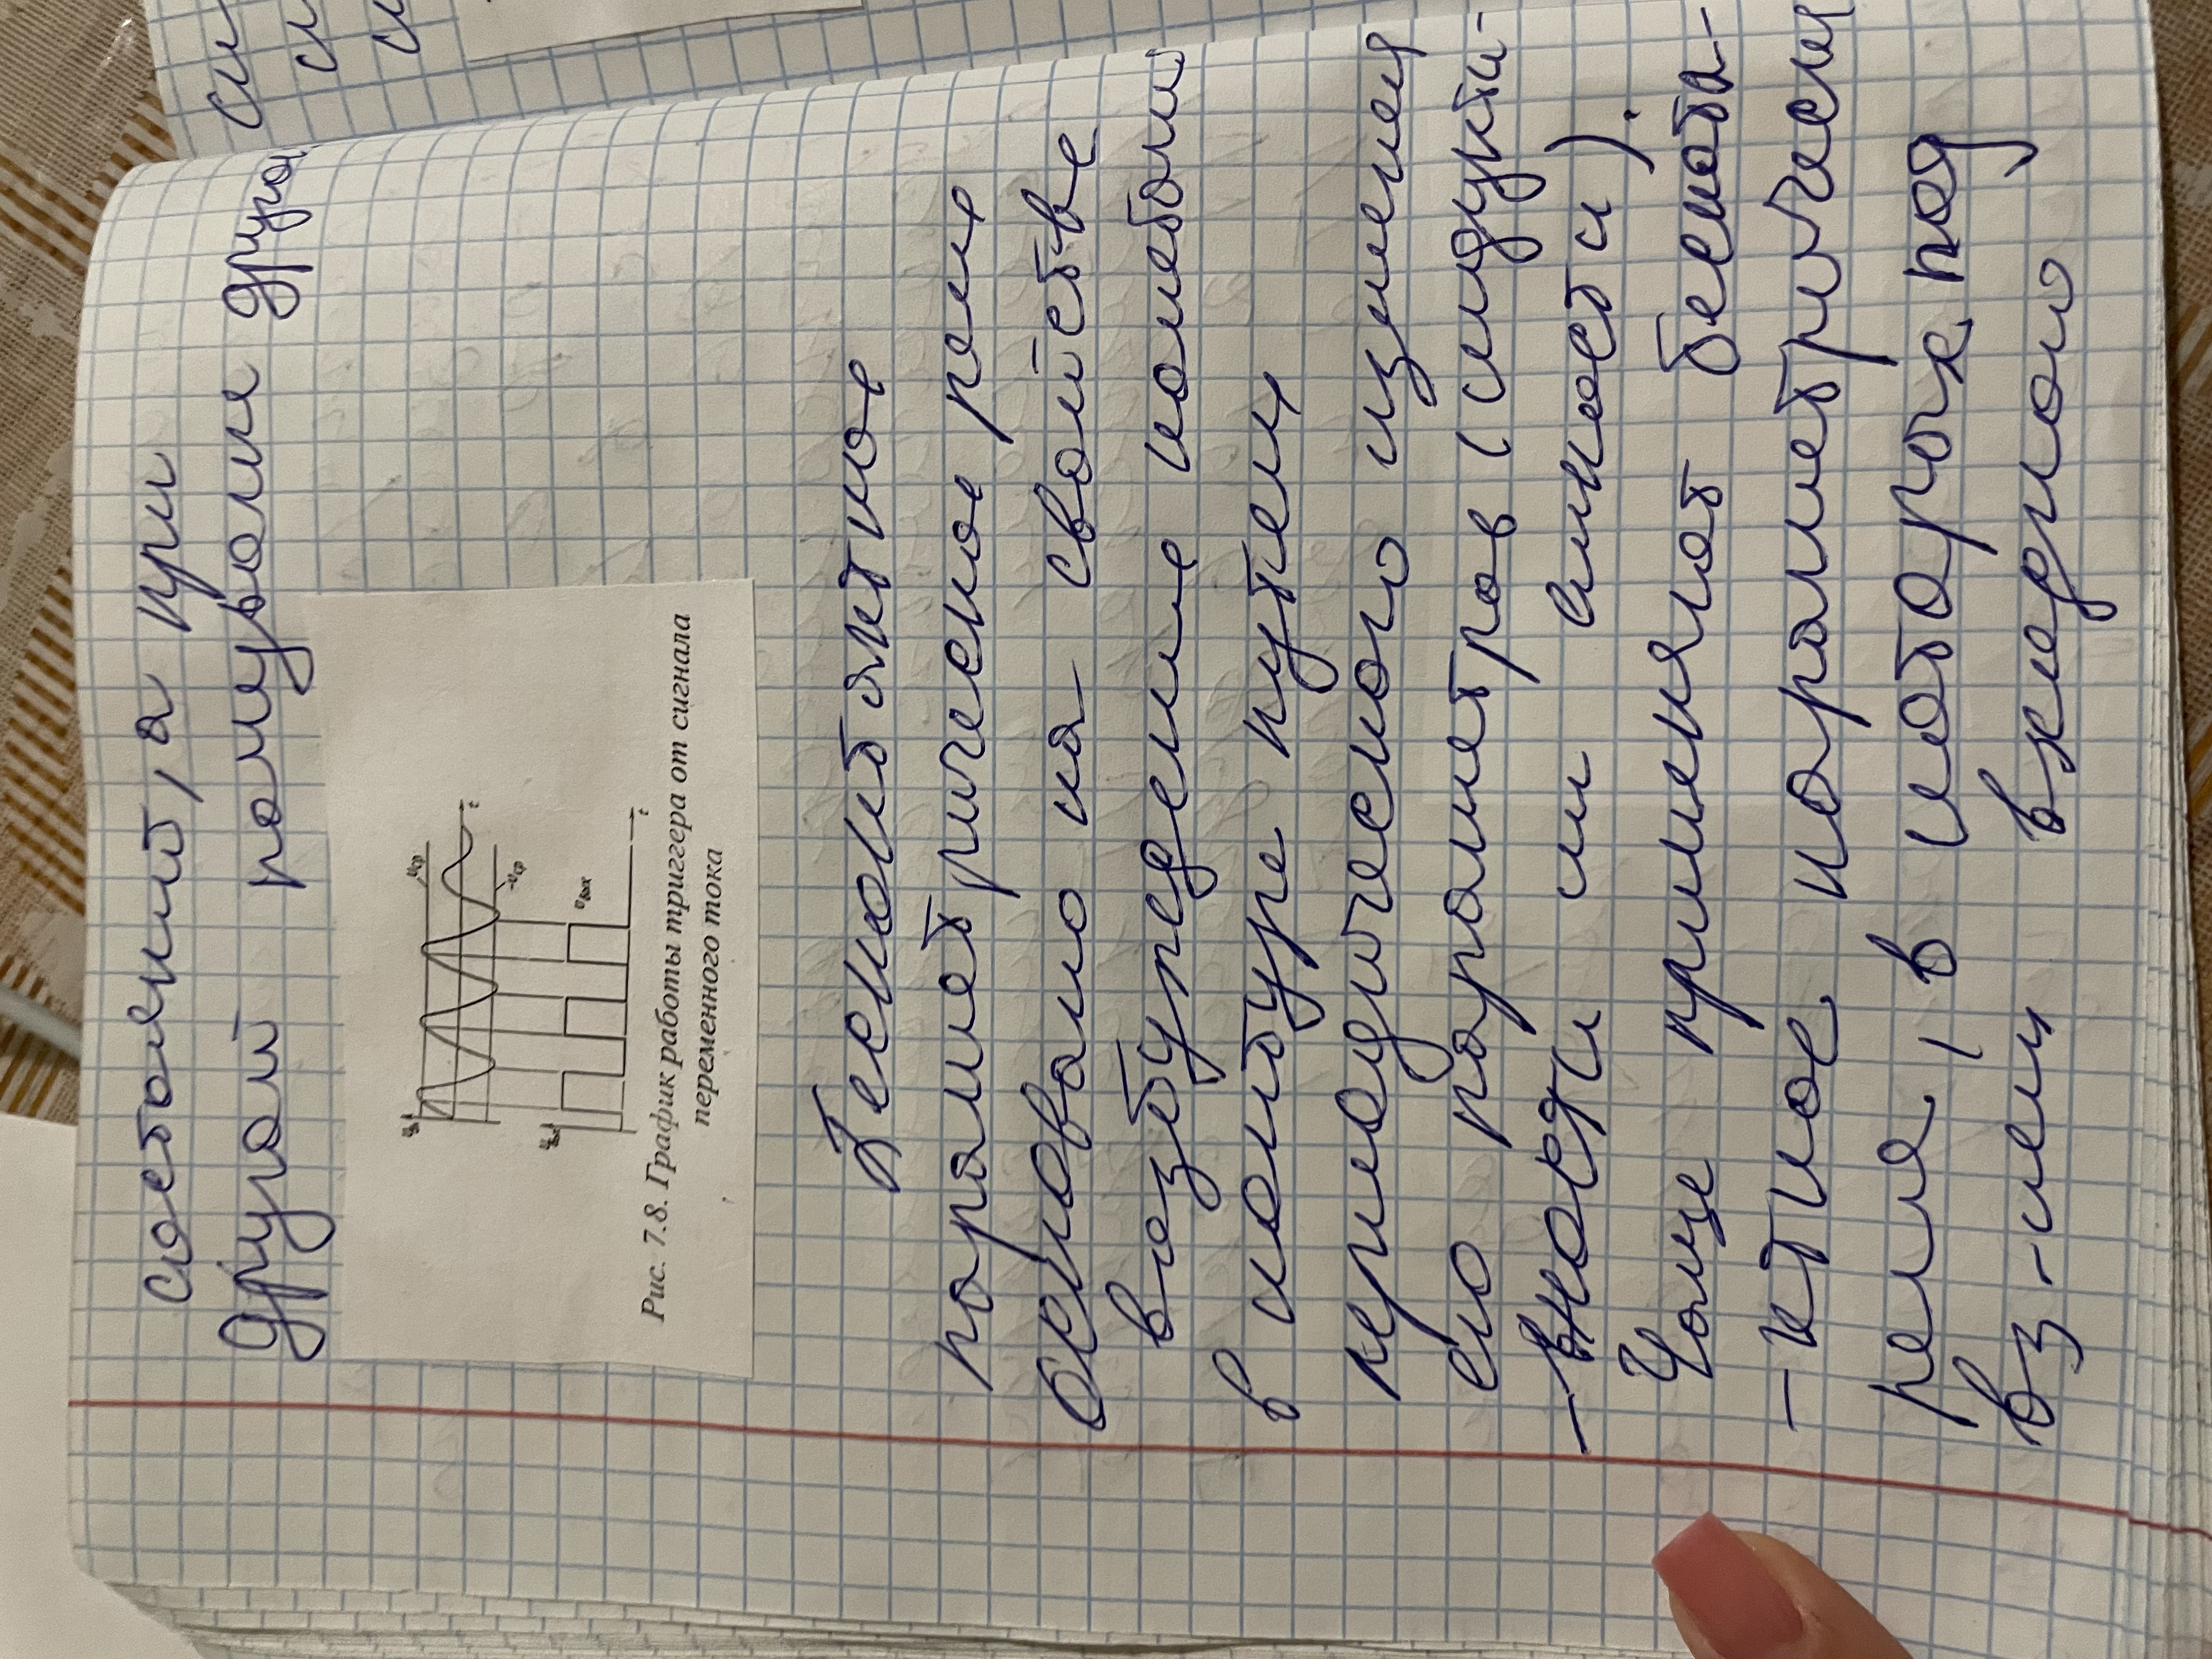 состояний, а при
другой полуволне другая
Uвх
Uср
t
-Uср
Uвых
Uвых
t
Рис. 7.8. График работы триггера от сигнала
переменного тока
Бесконтактное
параметрическое реле
основано на свойстве
возбуждение колебани
в контуре путем
периодического изменен
его параметров (индукти-
-вности и ёмкости).
Чаще применяют бесконта-
-ктное параметрическ
реле, в котором под
вз-ием входного